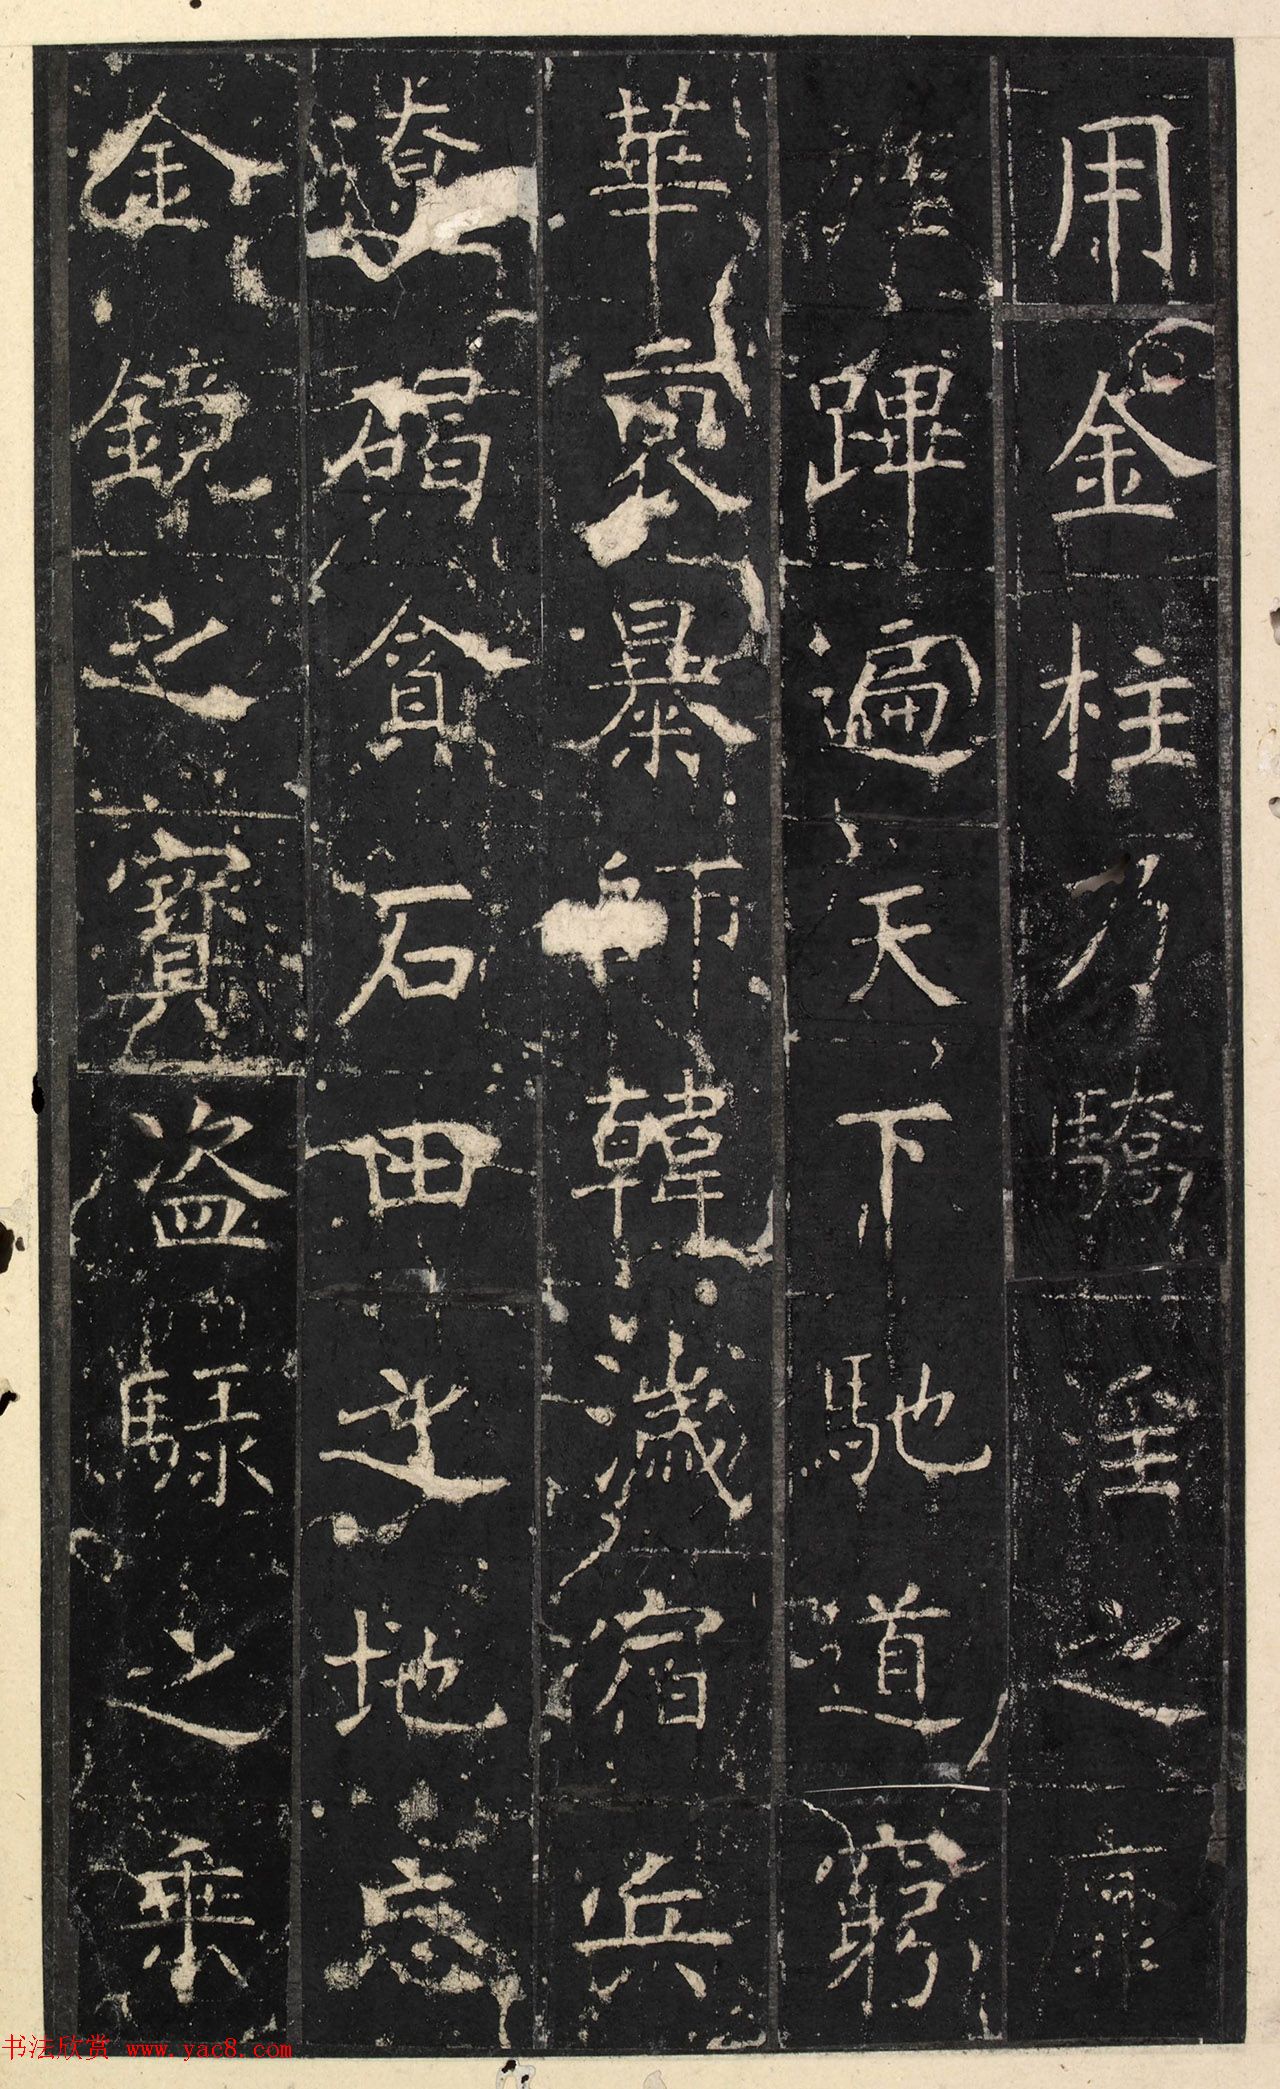 用金柱乃驕淫之靡
蹕遍天下馳道窮
華裔暴師韓濊宿兵
遼碣貪石田之地忘
金鏡之寶盜騄之乘
书法欣赏 www.yac8.com